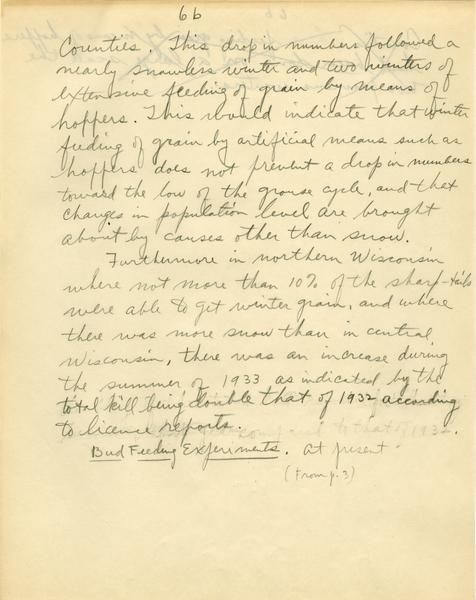 66
Counties. This drop in numbers followed a
nearly snowless winter and two winters of
extensive feeding of grain by means of
hoppers. This would indicate that winter
feeding of grain by artificial means such as
hoppers does not prevent a drop in numbers
toward the low of the grouse cycle, and that
changes in population level are brought
about by causes other than snow.
Furthermore in northern Wisconsin
where not more than 10% of the sharp-tails
were able to get winter grain, and where
there was more snow than in central
Wisconsin, there was an increase during
the summer of 1933 as indicated by the
total kill being double that of 1932 according
to licence reports.
Bud Feeding Experiments. At present
(From p. 3)